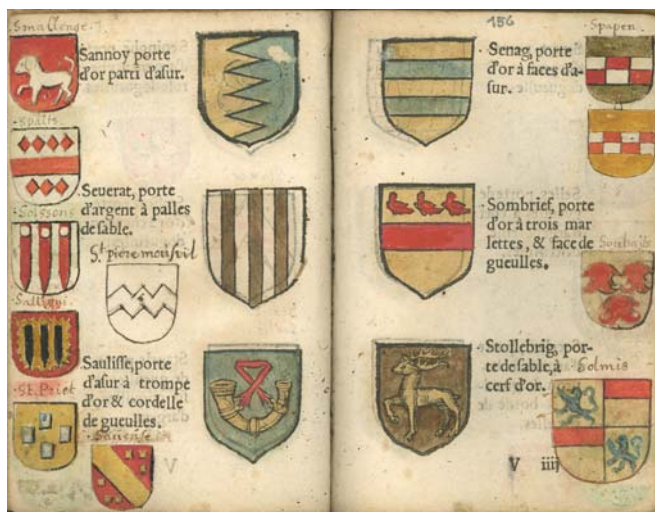 Smallenge.
Sannoy porte
d'or parti d'asur.
Spalts
Seuerat, porte
d'argent à palles
de sable.
Soissons
St piere
Saulisse, porte
d'asur à trompe
d'or & cordelle
de gueulles.
St. Priet
156
Spapen.
Senag, porte
d'or à faces d'a-
sur.
Sombrief, porte
d'or à trois mar
lettes, & face de
gueulles.
Stollebrig, por-
te de sable, à
cerf d'or.
Solmis
V iiij